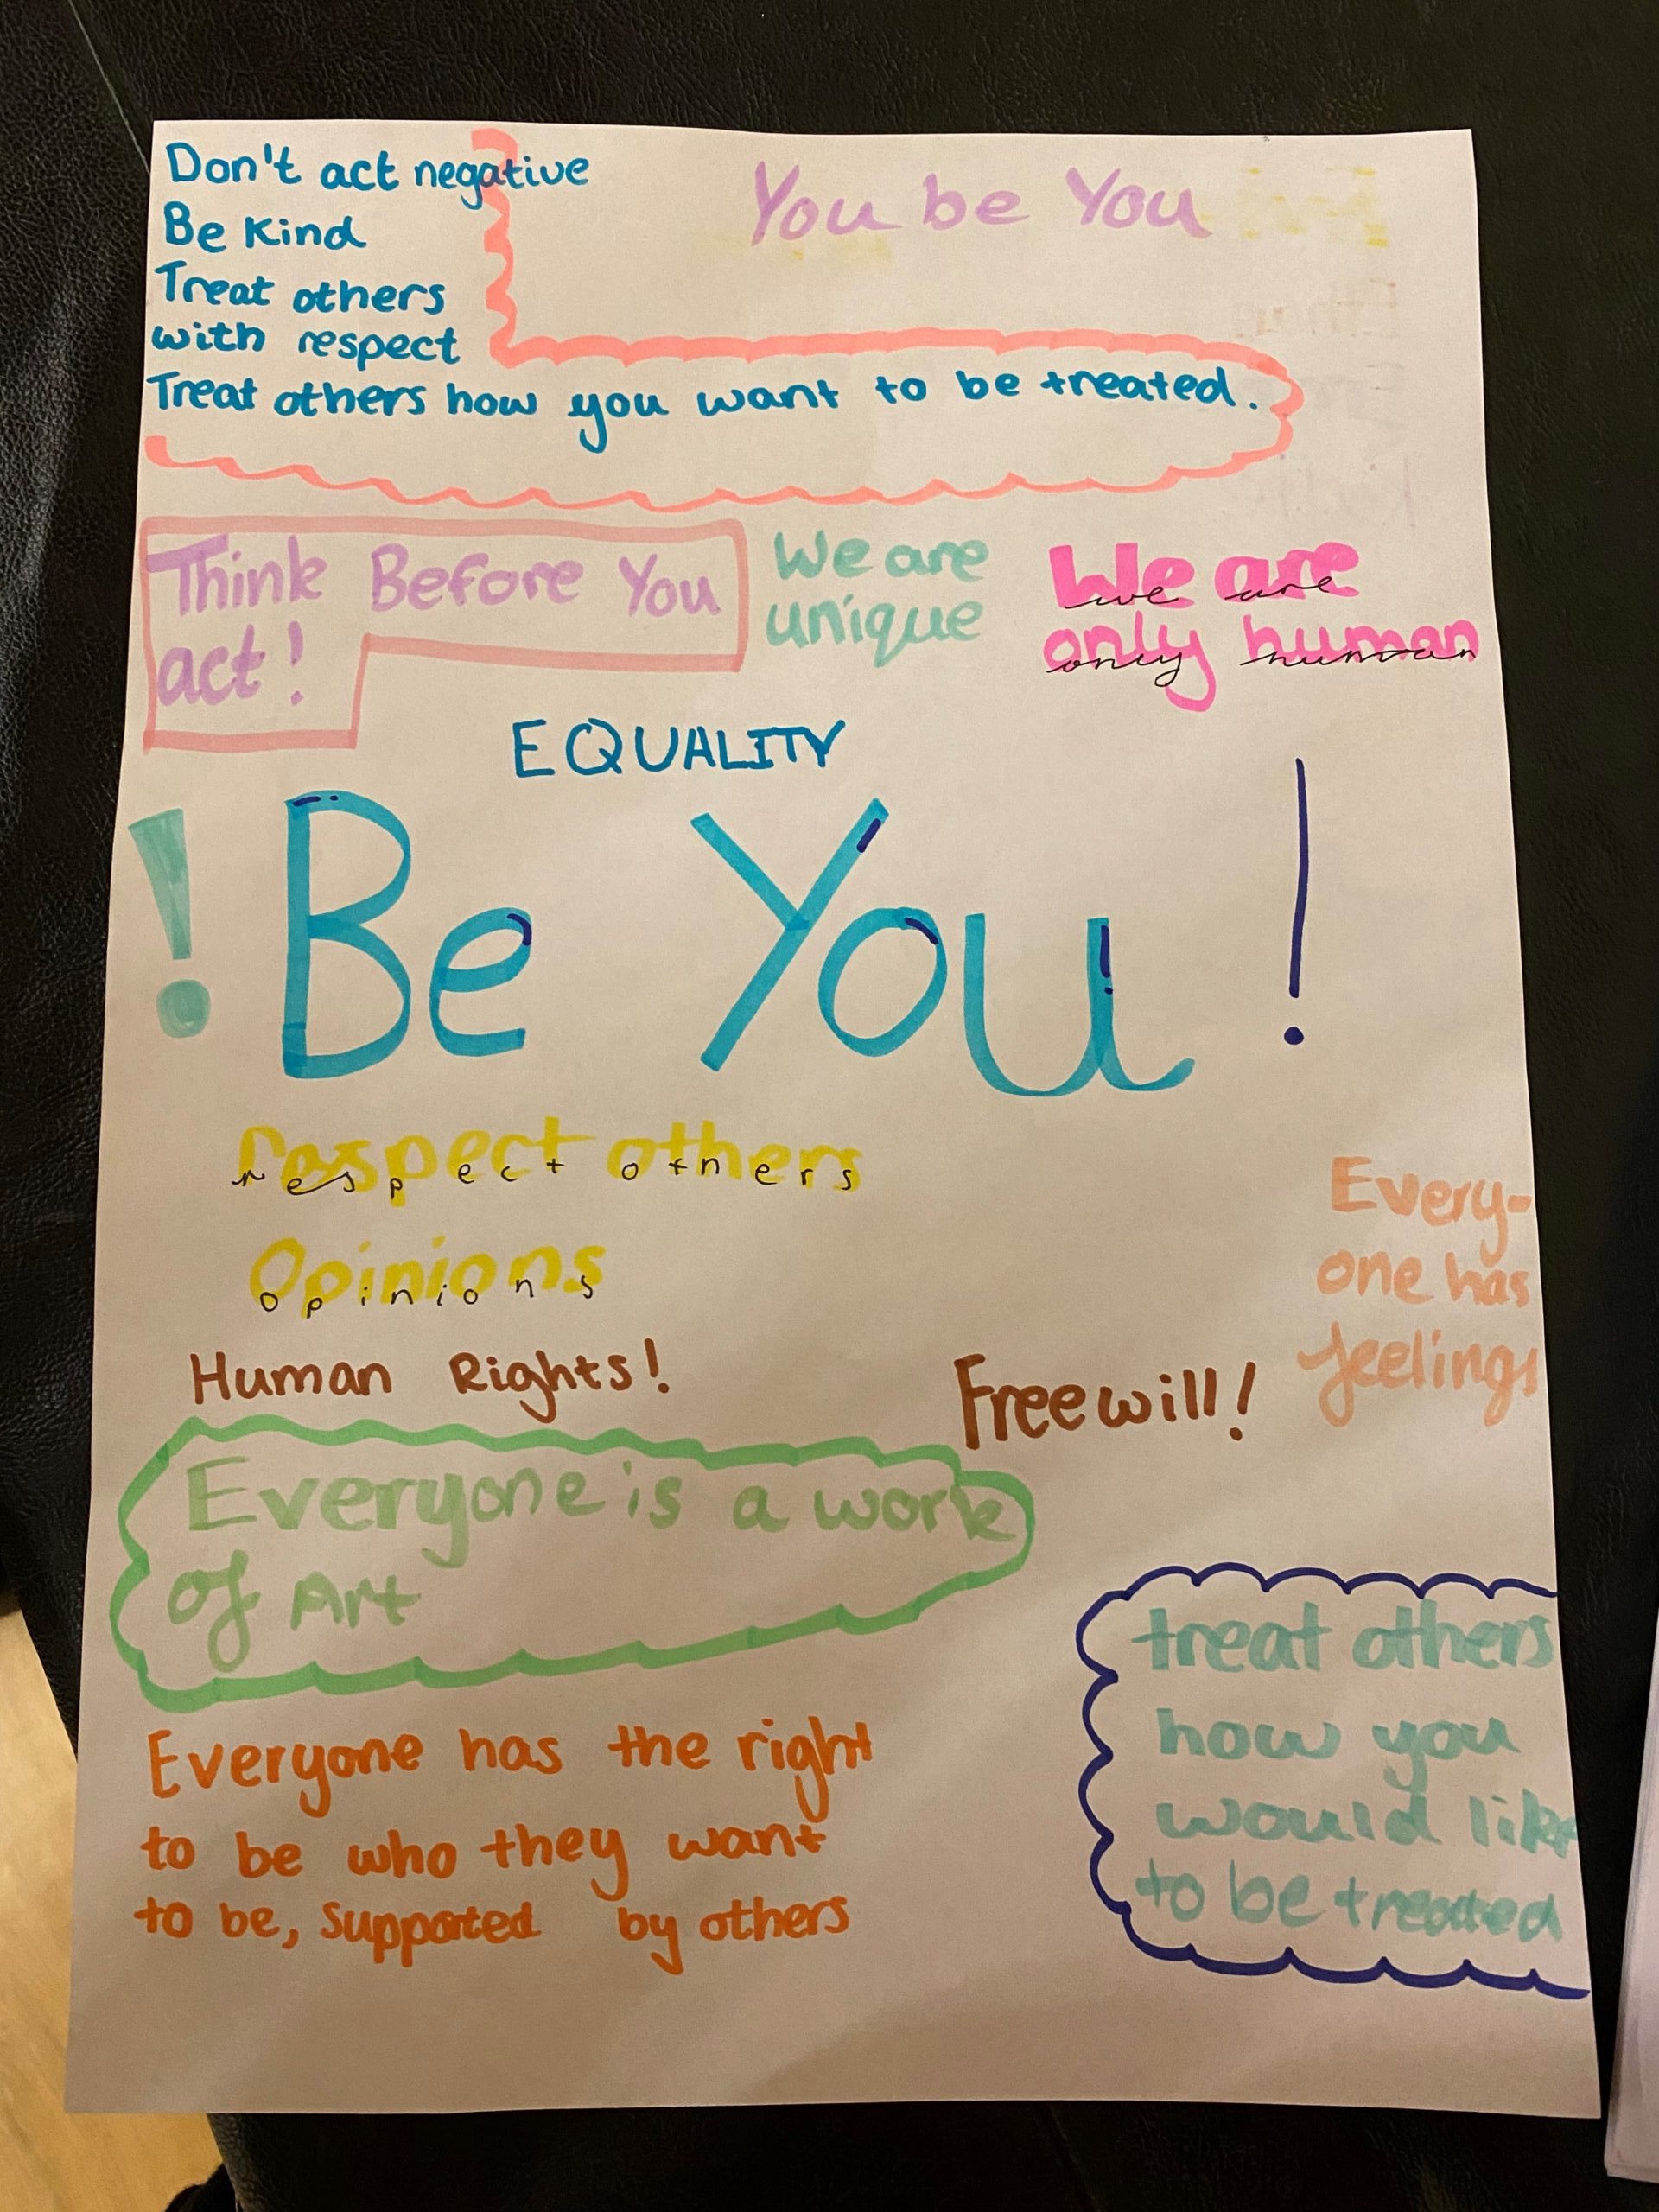 Don't act negative
Be Kind
Treat others
with respect
Treat others how you want to be treated.
You be You
Think Before You
act!
We are
unique
We are
we are
only human
only human
EQUALITY
! Be You !
respect others
respect others
Opinions
opinions
Every-
one has
feelings
Human Rights!
Freewill!
Everyone is a work
of Art
Everyone has the right
to be who they want
to be, supported by others
treat others
how you
would like
to be treated